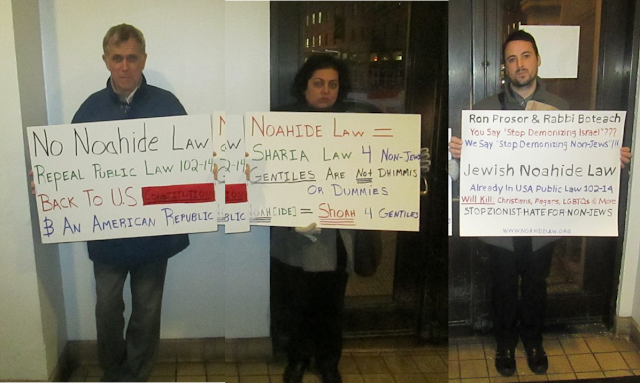 No Noahide Law
Repeal Public Law 102-14
Back To U.S Constitution
$ An American Republic
LAW
2-14
BLIC
Noahide Law =
Sharia Law 4 Non-Jews
Gentiles Are Not Dhimmis
Or Dummies
Noah(c)ide = Shoah 4 Gentiles
Ron Prosor & Rabbi Boteach
You Say "Stop Demonizing Israel"???
We Say "Stop Demonizing Non-Jews"!!
Jewish Noahide Law
Already In USA Public Law 102-14
Will Kill: Christians, Pagans, LGBTQs & More
STOP ZIONIST HATE FOR NON-JEWS
WWW.NOAHIDELAW.ORG